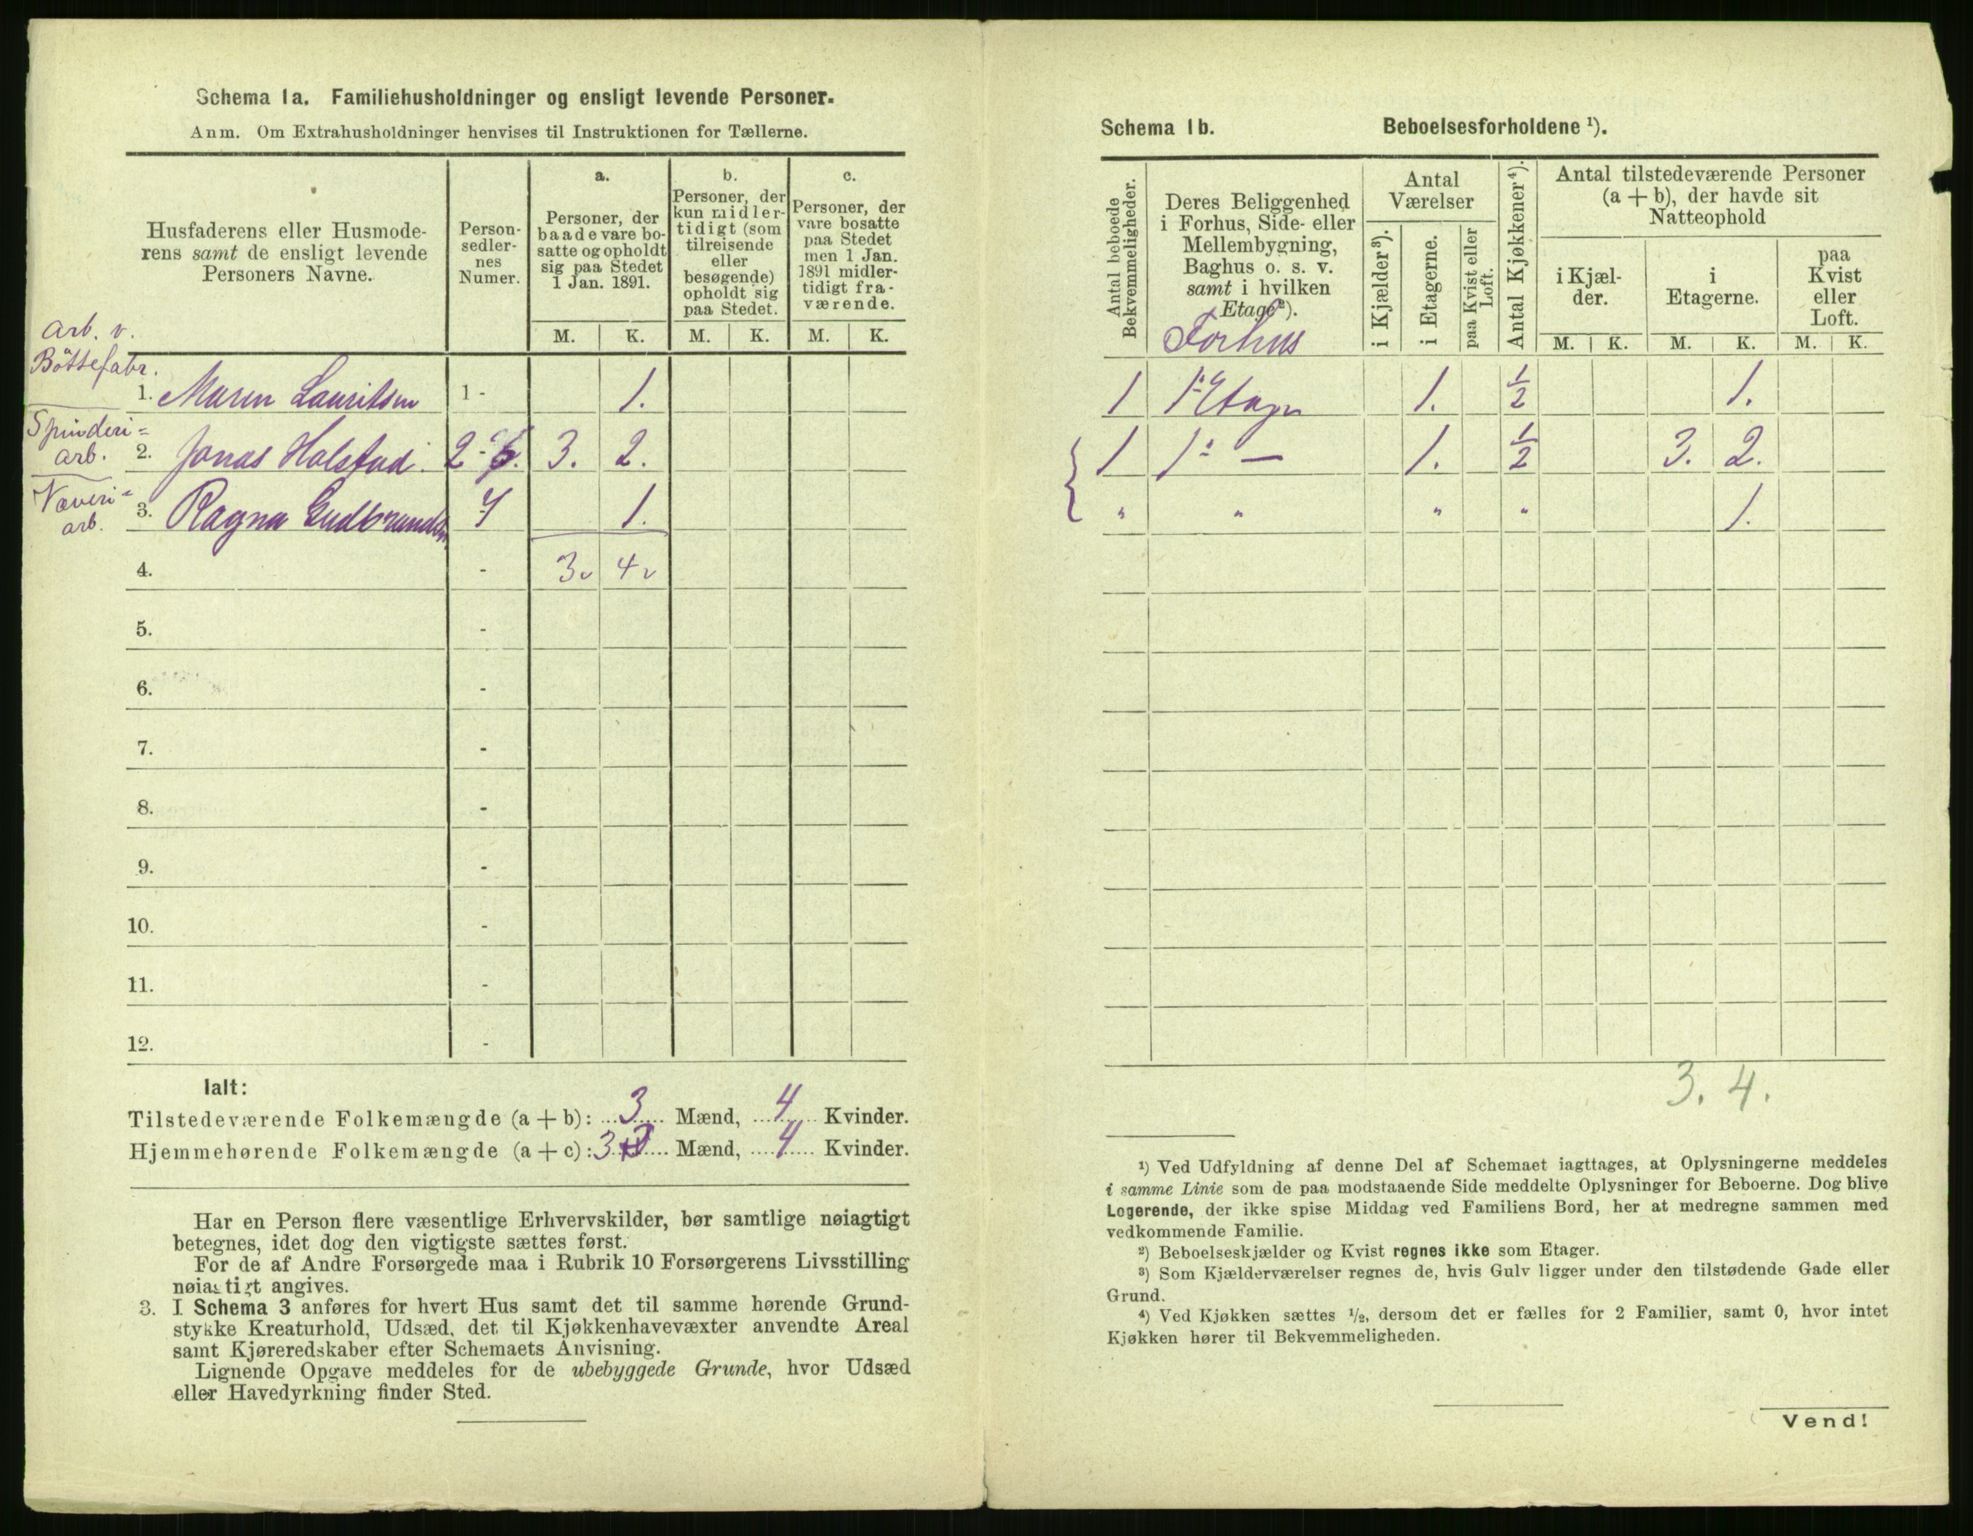 Schema 1a. Familiehusholdninger og ensligt levende Personer.
Anm. Om Extrahusholdninger henvises til Instruktionen for Tællerne.
Husfaderens eller Husmode-
rens samt de ensligt levende
Personers Navne.
Person-
sedler-
nes
Numer.
a.
Personer, der
baade vare bo-
satte og opholdt
sig paa Stedet
1 Jan. 1891.
b.
Personer, der
kun midler-
tidigt (som
tilreisende
eller
besøgende)
opholdt sig
paa Stedet.
c.
Personer, der
vare bosatte
paa Stedet
men 1 Jan.
1891 midler-
tidigt fra-
værende.
M. K. M. K. M. K.
Arb. v.
Böttefabr.
1. Maren Lauritsen 1 - 1.
Spinderi=
arb.
2. Jonas Holstad. 2 - 6. 3. 2.
Væveri=
arb.
3. Ragna Gudbrandsen 7 1.
4. - 3 4
5. -
6. -
7. -
8. -
9. -
10. -
11. -
12. -
Ialt:
Tilstedeværende Folkemængde (a + b): 3 Mænd, 4 Kvinder.
Hjemmehørende Folkemængde (a + c): 3 Mænd, 4 Kvinder.
Har en Person flere væsentlige Erhvervskilder, bør samtlige nøiagtigt
betegnes, idet dog den vigtigste sættes først.
For de af Andre Forsørgede maa i Rubrik 10 Forsørgerens Livsstilling
nøiagtigt angives.
3. I Schema 3 anføres for hvert Hus samt det til samme hørende Grund-
stykke Kreaturhold, Udsæd, det til Kjøkkenhavevæxter anvendte Areal
samt Kjøreredskaber efter Schemaets Anvisning.
Lignende Opgave meddeles for de ubebyggede Grunde, hvor Udsæd
eller Havedyrkning finder Sted.
Schema 1b. Beboelsesforholdene ¹).
Antal beboede
Bekvemmeligheder.
Deres Beliggenhed
i Forhus, Side- eller
Mellembygning,
Baghus o. s. v.
samt i hvilken
Etage²).
Forhus
Antal
Værelser
i Kjælder³).
i Etagerne.
paa Kvist eller
Loft.
Antal Kjøkkener⁴).
Antal tilstedeværende Personer
(a + b), der havde sit
Natteophold
i Kjæl-
der.
i
Etagerne.
paa
Kvist
eller
Loft.
M. K. M. K. M. K.
1 1ste Etage 1. ½ 1.
1 1ste — 1. ½ 3. 2.
" " " " 1.
3. 4.
¹) Ved Udfyldning af denne Del af Schemaet iagttages, at Oplysningerne meddeles
i samme Linie som de paa modstaaende Side meddelte Oplysninger for Beboerne. Dog blive
Logerende, der ikke spise Middag ved Familiens Bord, her at medregne sammen med
vedkommende Familie.
²) Beboelseskjælder og Kvist regnes ikke som Etager.
³) Som Kjælderværelser regnes de, hvis Gulv ligger under den tilstødende Gade eller
Grund.
⁴) Ved Kjøkken sættes ½, dersom det er fælles for 2 Familier, samt 0, hvor intet
Kjøkken hører til Bekvemmeligheden.
Vend!